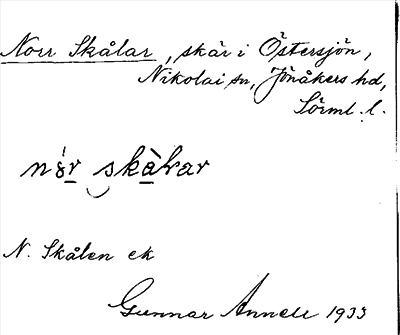 Norr Skålar, skär i Östersjön,
Nikolai sn, Jönåkers hd,
Sörml. l.
skàlar
N. Skålen ek
Gunnar Annell 1933